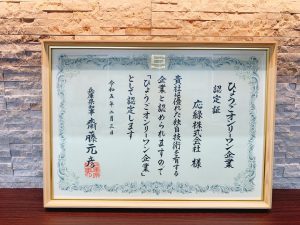 ひょうごオンリーワン企業
認定証
応緑株式会社 様
貴社は優れた独自技術を有する
企業と認められますので
「ひょうごオンリーワン企業」
として認定します
令和五年 月 日
兵庫県知事 齋藤元彦